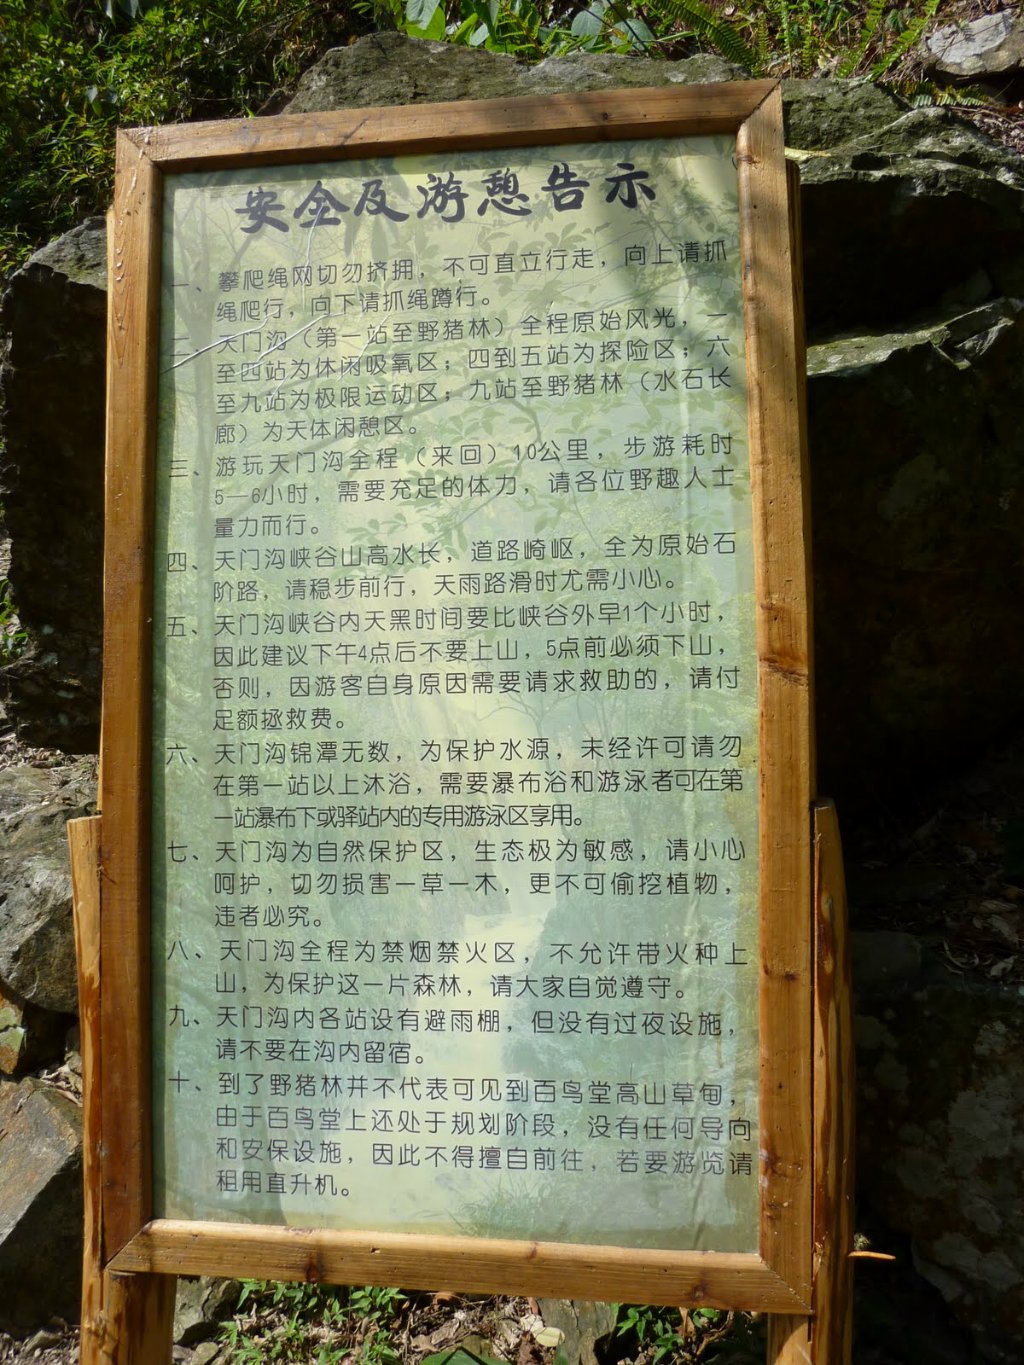 安全及游憩告示
一、攀爬绳网切勿挤拥，不可直立行走，向上请抓
绳爬行，向下请抓绳蹲行。
二、天门沟（第一站至野猪林）全程原始风光，一
至四站为休闲吸氧区；四到五站为探险区；六
至九站为极限运动区；九站至野猪林（水石长
廊）为天体闲憩区。
三、游玩天门沟全程（来回）10公里，步游耗时
5—6小时，需要充足的体力，请各位野趣人士
量力而行。
四、天门沟峡谷山高水长，道路崎岖，全为原始石
阶路，请稳步前行，天雨路滑时尤需小心。
五、天门沟峡谷内天黑时间要比峡谷外早1个小时，
因此建议下午4点后不要上山，5点前必须下山，
否则，因游客自身原因需要请求救助的，请付
足额拯救费。
六、天门沟锦潭无数，为保护水源，未经许可请勿
在第一站以上沐浴，需要瀑布浴和游泳者可在第
一站瀑布下或驿站内的专用游泳区享用。
七、天门沟为自然保护区，生态极为敏感，请小心
呵护，切勿损害一草一木，更不可偷挖植物，
违者必究。
八、天门沟全程为禁烟禁火区，不允许带火种上
山，为保护这一片森林，请大家自觉遵守。
九、天门沟内各站设有避雨棚，但没有过夜设施，
请不要在沟内留宿。
十、到了野猪林并不代表可见到百鸟堂高山草甸，
由于百鸟堂上还处于规划阶段，没有任何导向
和安保设施，因此不得擅自前往，若要游览请
租用直升机。